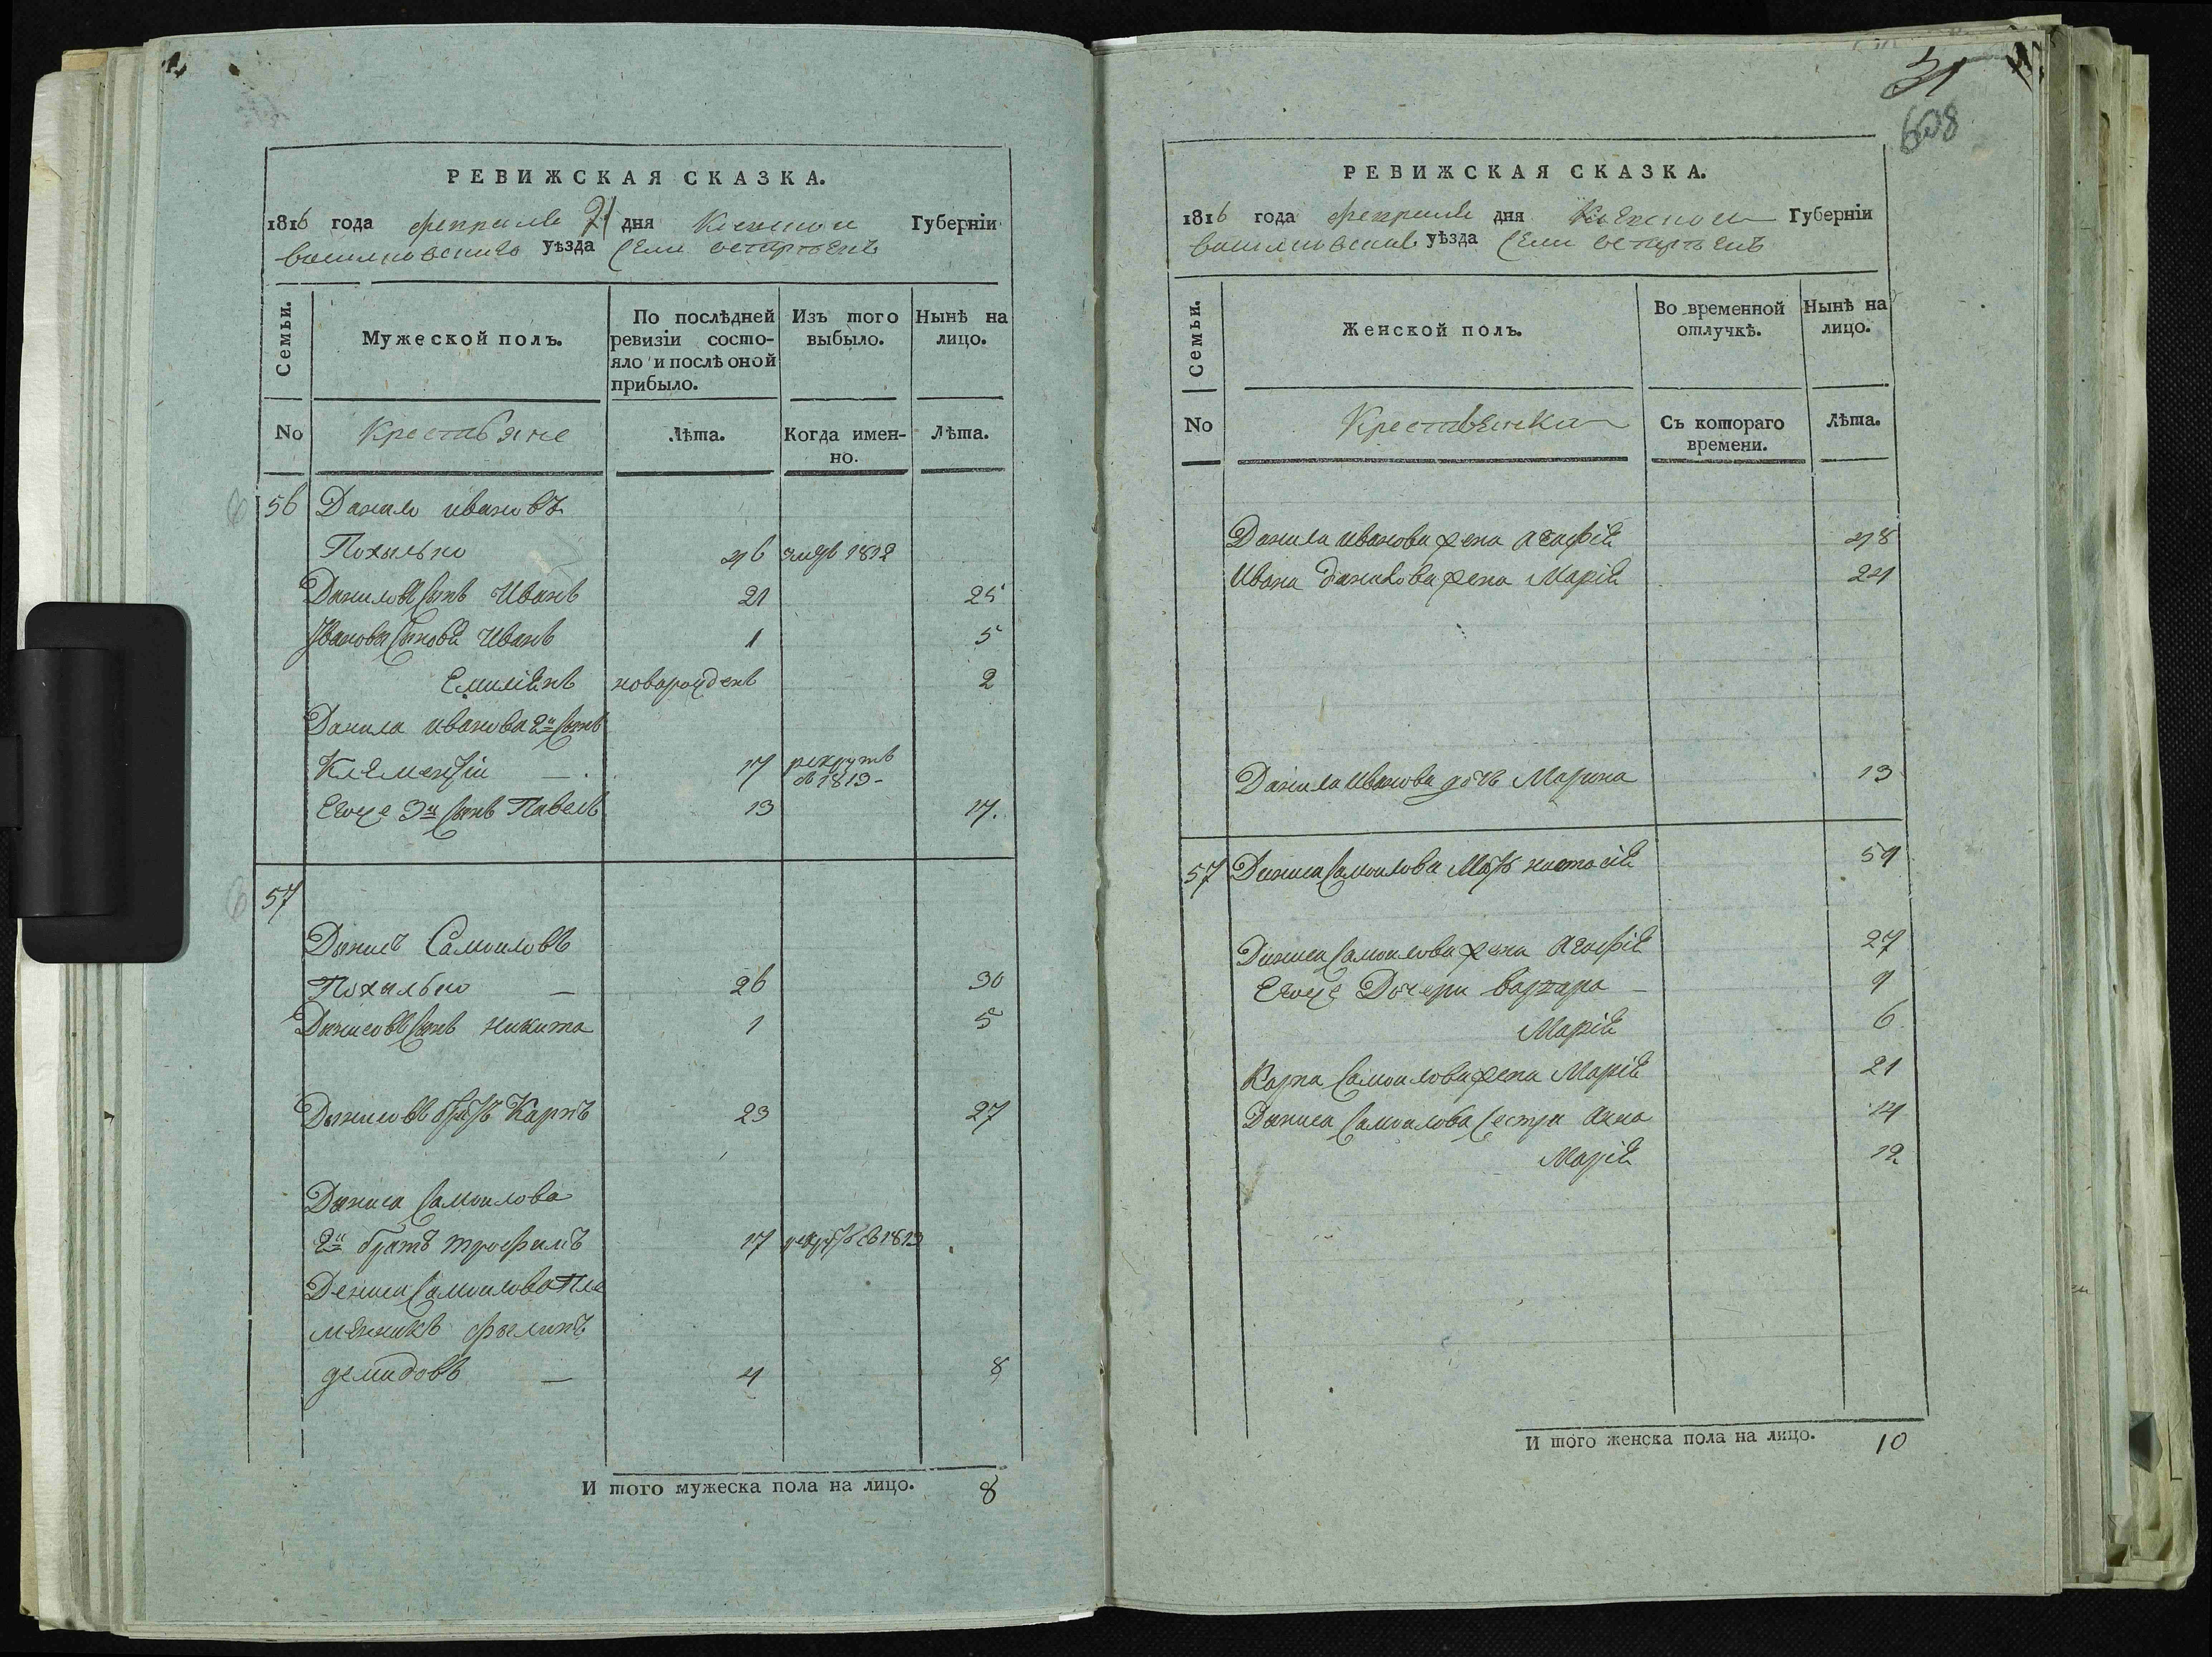 РЕВИЖСКАЯ СКАЗКА.
1816 года февраля 21 дня Киевской Губерніи
васильковскаго уѣзда села
Семьи.
Мужеской полъ.
По послѣдней ревизіи состо-
яло и послѣ оной
прибыло.
Изъ того
выбыло.
Нынѣ на
лицо.
No
Крестьяне
Лѣта.
Когда имен-
но.
Лѣта.
56 Данило ивановъ
Похилько 46 1812
Даниловъ сынъ Иванъ 21 25
Иванова сынови Иванъ 1 5
Емиліянъ новорожденъ 2
Данила иванова 2й сынъ
Клементіи — 17 рекрутъ
в 1813 -
Егоже 3й сынъ Павелъ 13 17.
57
Данисъ Самоиловъ
Похилько — 26 30
Данисовъ сынъ никита 1 5
Данисовъ братъ Карпъ 23 27
Даниса Самоилова
2й братъ трофимъ 17 рекрутъ в 1813
Дениса Самоилова пле
мянникъ филипъ
демидовъ — 4 8
И того мужеска пола на лицо. 8
31
608
РЕВИЖСКАЯ СКАЗКА.
1816 года февраля дня Киевской Губерніи
васильковскаго уѣзда села
Семьи.
Женской полъ.
Во временной
отлучкѣ.
Нынѣ на
лицо.
No
Крестьянки
Съ котораго
времени.
Лѣта.
Данила иванова жена агафія 48
Ивана данилова жена Марія 24
Данила Иванова дочь Марина 13
57 Даниса Самоилова мать настасія 59
Даниса Самоилова жена Агафія 27
Егоже Дочери варвара — 9
Марія 6
Карпа Самоилова жена Марія 21
Даниса Самоилова сестри анна 14
Марія 12
И того женска пола на лицо. 10